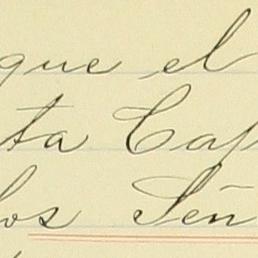 que el
ta Cap
los Señ